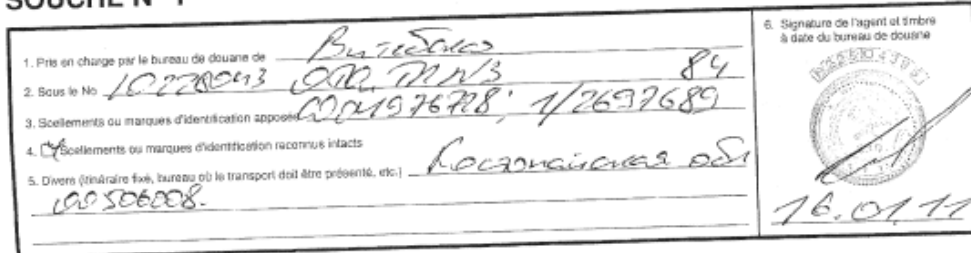 SOUCHE N° 1
1. Pris en charge par le bureau de douane de
2. Sous le No 10228043 84
3. Scellements ou marques d'identification apposés 1/2697689
4. Scellements ou marques d'identification reconnus intacts
5. Divers (itinéraire fixé, bureau où le transport doit être présenté, etc.) обл
00506008.
6. Signature de l'agent et timbre
à date du bureau de douane
16.01.11